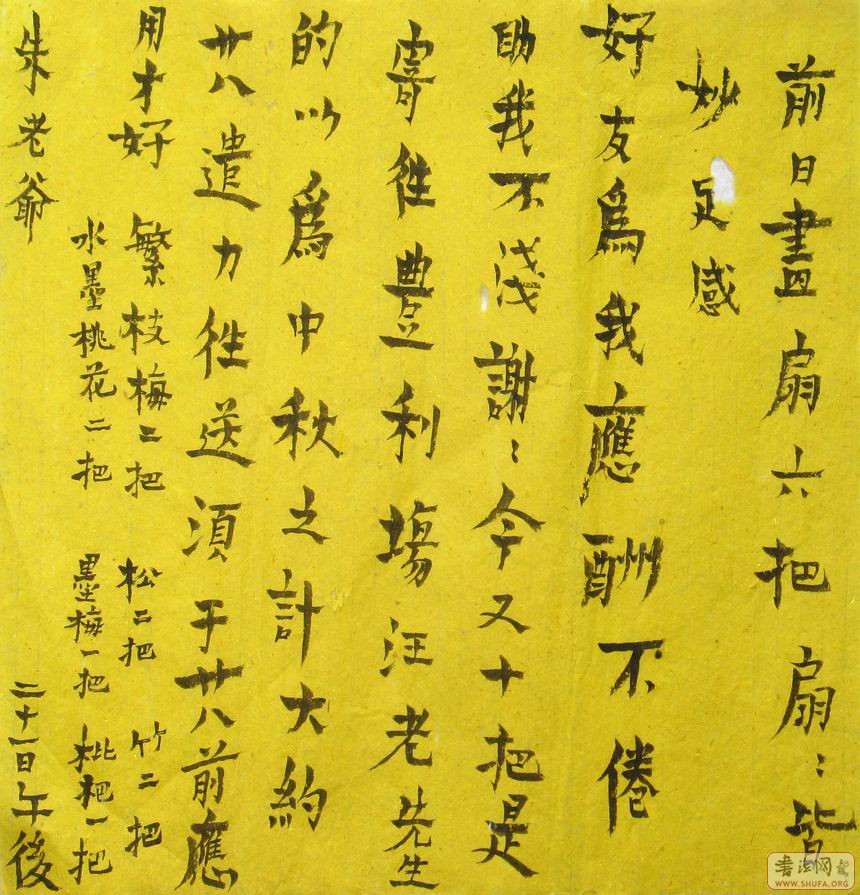 前日畫扇六把扇〻皆
妙足感
好友爲我應酬不倦
助我不淺謝〻今又十把是
寄徃豊利場汪老先生
的以爲中秋之計大約
廿八遣力徃送須于廿八前應
用才好 繁枝梅二把 松二把 竹二把
水墨桃花二把 墨梅一把 枇杷一把
朱老爺 二十一日午後
書法网
WWW.SHUFA.ORG